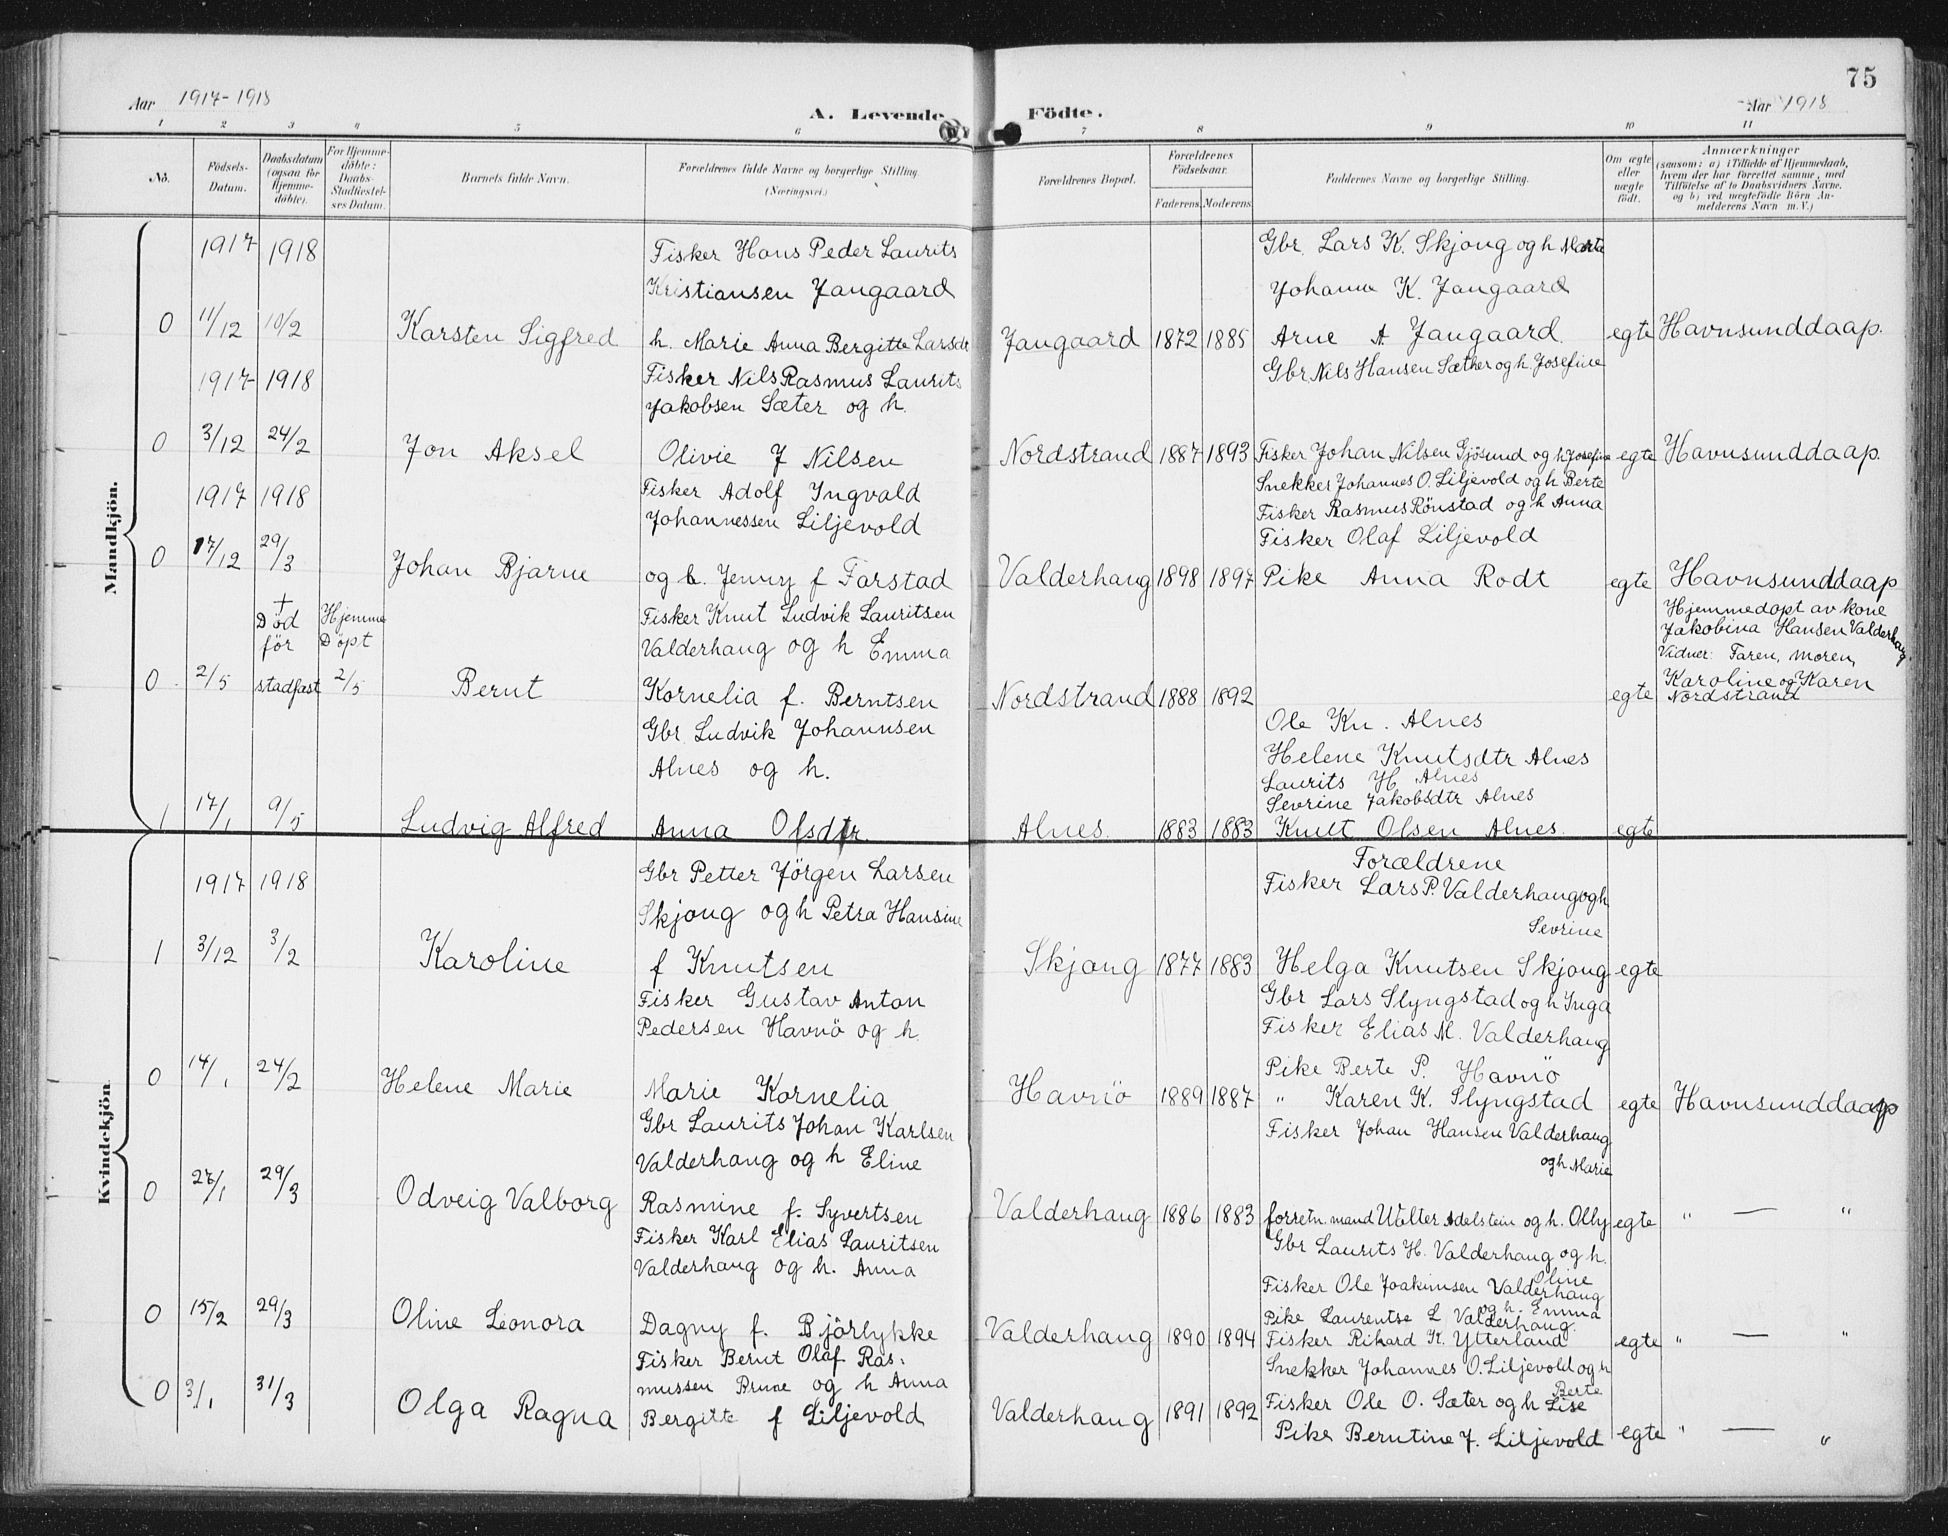 75
Aar 1917-1918
A. Levende Födte.
Aar 1918
1 2 3 4 5 6 7 8 9 10 11
No.
Födsels-Datum.
Daabsdatum (ogsaa for Hjemme-döbte).
For Hjemme-döbte: Daabs-Stadfæstel-ses Datum.
Barnets fulde Navn.
Forældrenes fulde Navne og borgerlige Stilling. (Næringsvei.)
Forældrenes Bopæl.
Forældrenes Födselsaar.
Faderens. Moderens.
Faddernes Navne og borgerlige Stilling.
Om ægte eller uægte födt.
Anmærkninger
(saasom: a) i Tilfælde af Hjemmedaab, hvem der har forrettet samme, med Tilföielse af to Daabsvidners Navne, og b) ved uægtefödte Börn An-melderens Navn m. V.)
Mandkjön.
1917 1918
Fisker Hans Peder Laurits
Kristiansen Jangaard
0 11/12 10/2 Karsten Sigfred h. Marie Anna Bergitte Larsdt Jangaard 1872 1885
Gbr. Lars K. Skjong og h Marte
Johanna K. Jangaard
Arne A Jangaard egte Havnsunddaap.
Gbr Nils Hansen Sæther og h. Josefine
1917 1918
Fisker Nils Rasmus Laurits
Jakobsen Sæter og h.
0 3/12 24/2 Jon Aksel Olivie J Nilsen Nordstrand 1887 1893 Fisker Johan Nilsen Gjösund og h Josefine egte Havnsunddaap.
1917 1918
Fisker Adolf Ingvald
Johannessen Liljevold
Snekker Johannes O. Liljevold og h Berte
Fisker Rasmus Rönstad og h Anna
Fisker Olaf Liljevold
0 17/12 29/3 Johan Bjarne og h. Jenny f Farstad Valderhaug 1898 1897 Pike Anna Rodt egte Havnsunddaap
+ Död för stadfæst
Hjemme Döpt
Fisker Knut Ludvik Lauritsen
Valderhaug og h Emma
0 2/5 2/5 Bernt Kornelia f. Berntsen Nordstrand 1888 1892 egte
Hjemmedöpt av kone
Jakobina Hansen Valderhaug.
Vidner: Faren, moren,
Karoline og Karen
Nordstrand
Gbr. Ludvik Johannsen
Alnes og h.
Ole Kn. Alnes
Helene Knutsdtr Alnes
Laurits H Alnes
Sevrine Jakobsdtr Alnes
1 17/1 9/5 Ludvig Alfred Anna Olsdtr. Alnes. 1883 1883 Knut Olsen Alnes. egte
Kvindekjön.
1917 1918
Gbr Petter Jörgen Larsen
Skjong og h Petra Hansine
Forældrene
Fisker Lars P. Valderhaug og h
Sevrine
1 3/12 3/2 Karoline f Knutsen Skjong 1877 1883 Helga Knutsen Skjong egte
Fisker Gustav Anton
Pedersen Havnö og h.
Gbr Lars Slyngstad og h Inga
Fisker Elias M. Valderhaug
Pike Berte P. Havnö
0 14/1 24/2 Helene Marie Marie Kornelia Havnö 1889 1887 " Karen K. Slyngstad egte Havnsunddaap
Gbr Laurits Johan Karlsen
Valderhaug og h Eline
Fisker Johan Hansen Valderhaug
og h Marie
0 27/1 29/3 Odveig Valborg Rasmine f. Syvertsen Valderhaug 1886 1883 forretn. mand Walter Adelstein og h. Olly egte " — "
Fisker Karl Elias Lauritsen
Valderhaug og h. Anna
Gbr Laurits H. Valderhaug og h.
Oline
Fisker Ole Joakimsen Valderhaug
og h. Emma
Pike Laurentse L Valderhaug.
0 15/2 29/3 Oline Leonora Dagny f. Bjørlykke Valderhaug 1890 1894 Fisker Rikard K. Ytterland egte " — "
Fisker Bernt Olaf Ras-
mussen Brune og h Anna
Snekker Johannes O. Liljevold og h
Berte
0 3/1 31/3 Olga Ragna Bergitte f Liljevold Valderhaug 1891 1892 Fisker Ole O. Sæter og h Lise
Pike Berntine J. Liljevold egte " — "